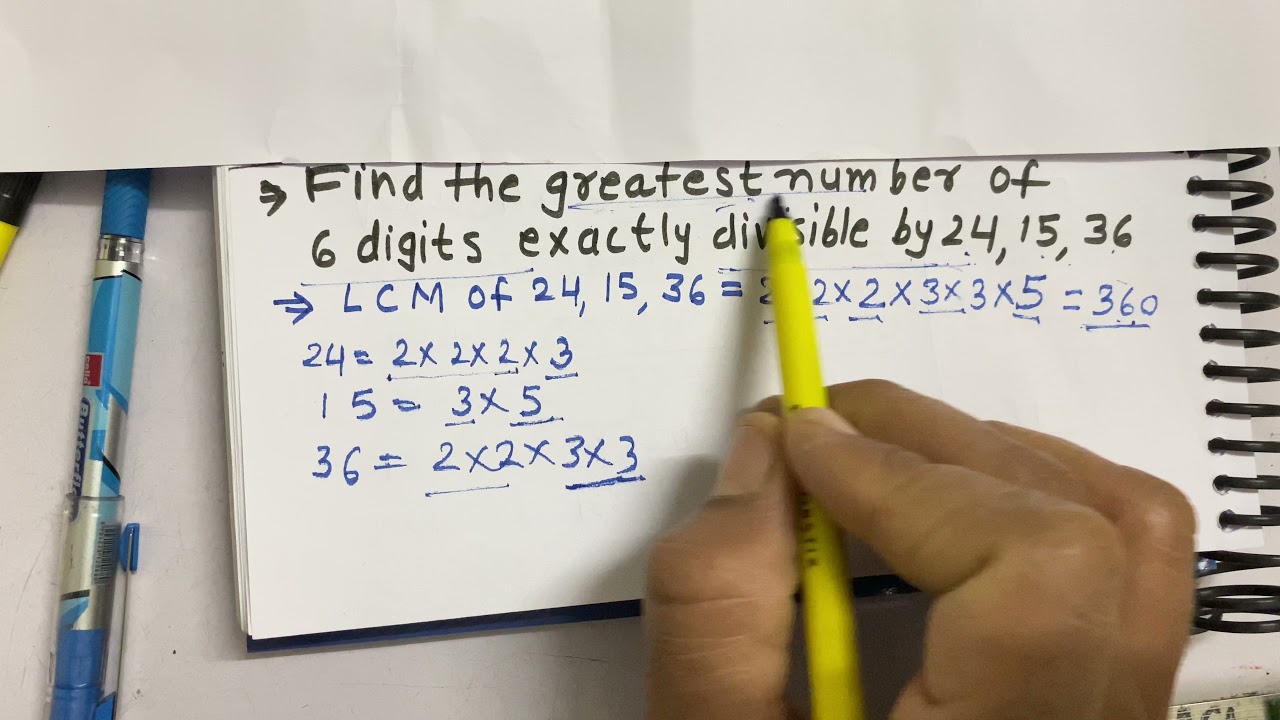 ⇒ Find the greatest number of
6 digits exactly divisible by 24, 15, 36
⇒ LCM of 24, 15, 36 = 2 × 2 × 2 × 3 × 3 × 5 = 360
24 = 2 × 2 × 2 × 3
15 = 3 × 5
36 = 2 × 2 × 3 × 3
cello